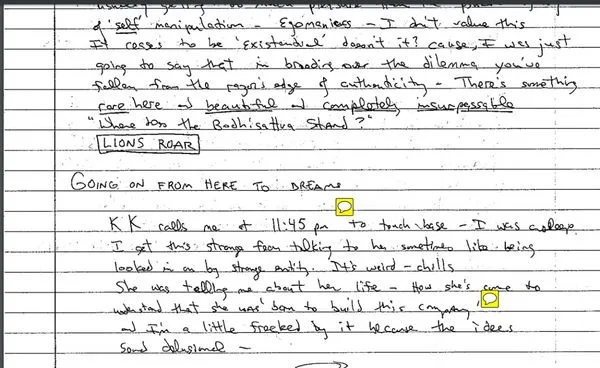 of 'self' manipulation - Egomaniacs - I don't value this
It ceases to be 'existential' doesn't it? cause, I was just
going to say that in brooding over the dilemma you've
fallen from the razor's edge of authenticity - There's something
rare here and beautiful and completely insurpassable
"Where does the Bodhisattva Stand?"
LIONS ROAR
GOING ON FROM HERE TO DREAMS
KK calls me at 11:45 pm to touch base - I was asleep
I get this strange from talking to her sometimes like being
looked in on by strange entity. It's weird - chills
She was telling me about her life - How she's come to
understand that she was 'born to build this company'
and I'm a little freaked by it because the ideas
sound delusional -